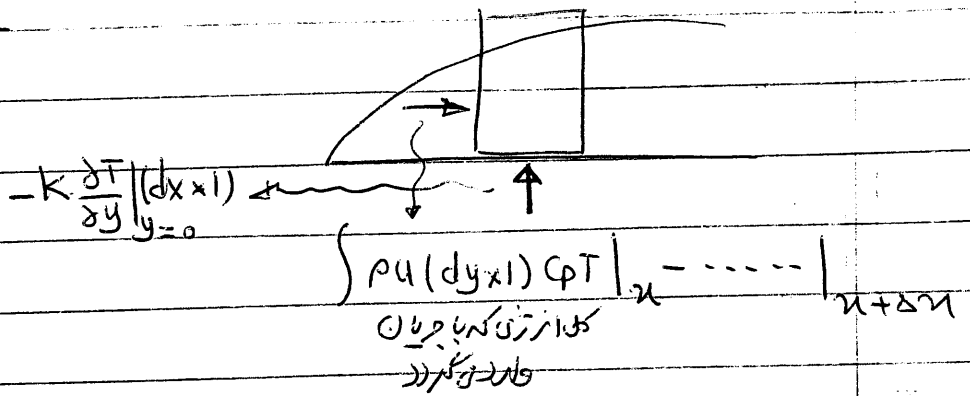 -K ∂T/∂y |y=0 (dx×1)
∫ ρu(dy×1) CpT |x - ...... |x+Δx
کل انرژی که با جریان
وارد می گردد